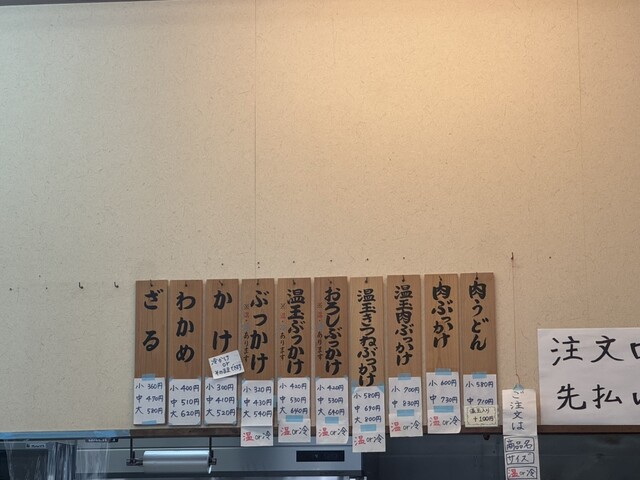 肉うどん
小 580円
中 710円
温玉入り
+100円
肉ぶっかけ
小 600円
中 730円
温or冷
温玉肉ぶっかけ
小 700円
中 830円
温or冷
温玉きつねぶっかけ
小 580円
中 690円
大 800円
温or冷
おろしぶっかけ
あります
小 420円
中 530円
大 640円
温or冷
温玉ぶっかけ
あります
小 420円
中 530円
大 640円
温or冷
ぶっかけ
あります
小 320円
中 430円
大 540円
温or冷
かけ
冷かけ
or
小 300円
中 410円
大 520円
わかめ
小 400円
中 510円
大 620円
ざる
小 360円
中 470円
大 580円
ご注文は
商品名
サイズ
温or冷
注文
先払い